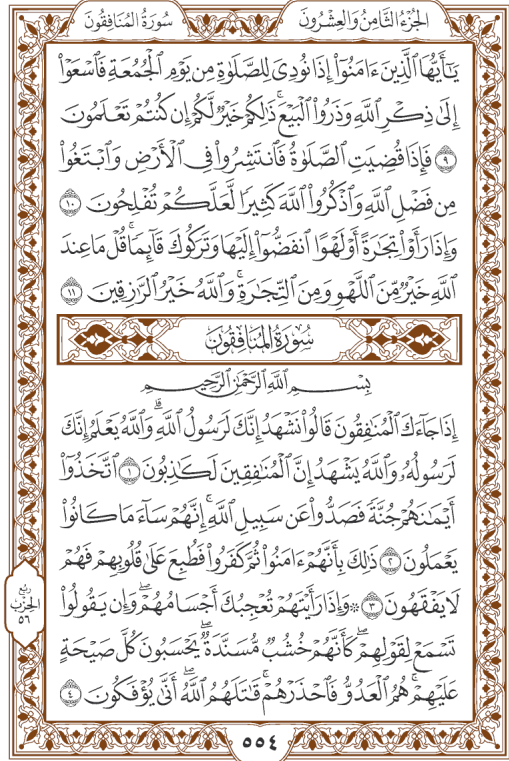 الجُزْءُ الثَّامِنُ وَالعِشْرُونَ
سُورَةُ المُنَافِقُونَ
يَٰٓأَيُّهَا ٱلَّذِينَ ءَامَنُوٓا۟ إِذَا نُودِىَ لِلصَّلَوٰةِ مِن يَوْمِ ٱلْجُمُعَةِ فَٱسْعَوْا۟
إِلَىٰ ذِكْرِ ٱللَّهِ وَذَرُوا۟ ٱلْبَيْعَ ۚ ذَٰلِكُمْ خَيْرٌ لَّكُمْ إِن كُنتُمْ تَعْلَمُونَ
٩ فَإِذَا قُضِيَتِ ٱلصَّلَوٰةُ فَٱنتَشِرُوا۟ فِى ٱلْأَرْضِ وَٱبْتَغُوا۟
مِن فَضْلِ ٱللَّهِ وَٱذْكُرُوا۟ ٱللَّهَ كَثِيرًا لَّعَلَّكُمْ تُفْلِحُونَ ١٠
وَإِذَا رَأَوْا۟ تِجَٰرَةً أَوْ لَهْوًا ٱنفَضُّوٓا۟ إِلَيْهَا وَتَرَكُوكَ قَآئِمًا ۚ قُلْ مَا عِندَ
ٱللَّهِ خَيْرٌ مِّنَ ٱللَّهْوِ وَمِنَ ٱلتِّجَٰرَةِ ۚ وَٱللَّهُ خَيْرُ ٱلرَّٰزِقِينَ ١١
سُورَةُ المُنَافِقُونَ
بِسْمِ ٱللَّهِ ٱلرَّحْمَٰنِ ٱلرَّحِيمِ
إِذَا جَآءَكَ ٱلْمُنَٰفِقُونَ قَالُوا۟ نَشْهَدُ إِنَّكَ لَرَسُولُ ٱللَّهِ ۗ وَٱللَّهُ يَعْلَمُ إِنَّكَ
لَرَسُولُهُۥ وَٱللَّهُ يَشْهَدُ إِنَّ ٱلْمُنَٰفِقِينَ لَكَٰذِبُونَ ١ ٱتَّخَذُوٓا۟
أَيْمَٰنَهُمْ جُنَّةً فَصَدُّوا۟ عَن سَبِيلِ ٱللَّهِ ۚ إِنَّهُمْ سَآءَ مَا كَانُوا۟
يَعْمَلُونَ ٢ ذَٰلِكَ بِأَنَّهُمْ ءَامَنُوا۟ ثُمَّ كَفَرُوا۟ فَطُبِعَ عَلَىٰ قُلُوبِهِمْ فَهُمْ
لَا يَفْقَهُونَ ٣ ۞ وَإِذَا رَأَيْتَهُمْ تُعْجِبُكَ أَجْسَامُهُمْ ۖ وَإِن يَقُولُوا۟
تَسْمَعْ لِقَوْلِهِمْ ۖ كَأَنَّهُمْ خُشُبٌ مُّسَنَّدَةٌ ۖ يَحْسَبُونَ كُلَّ صَيْحَةٍ
عَلَيْهِمْ ۚ هُمُ ٱلْعَدُوُّ فَٱحْذَرْهُمْ ۚ قَٰتَلَهُمُ ٱللَّهُ ۖ أَنَّىٰ يُؤْفَكُونَ ٤
ربع
الحزب
٥٦
٥٥٤